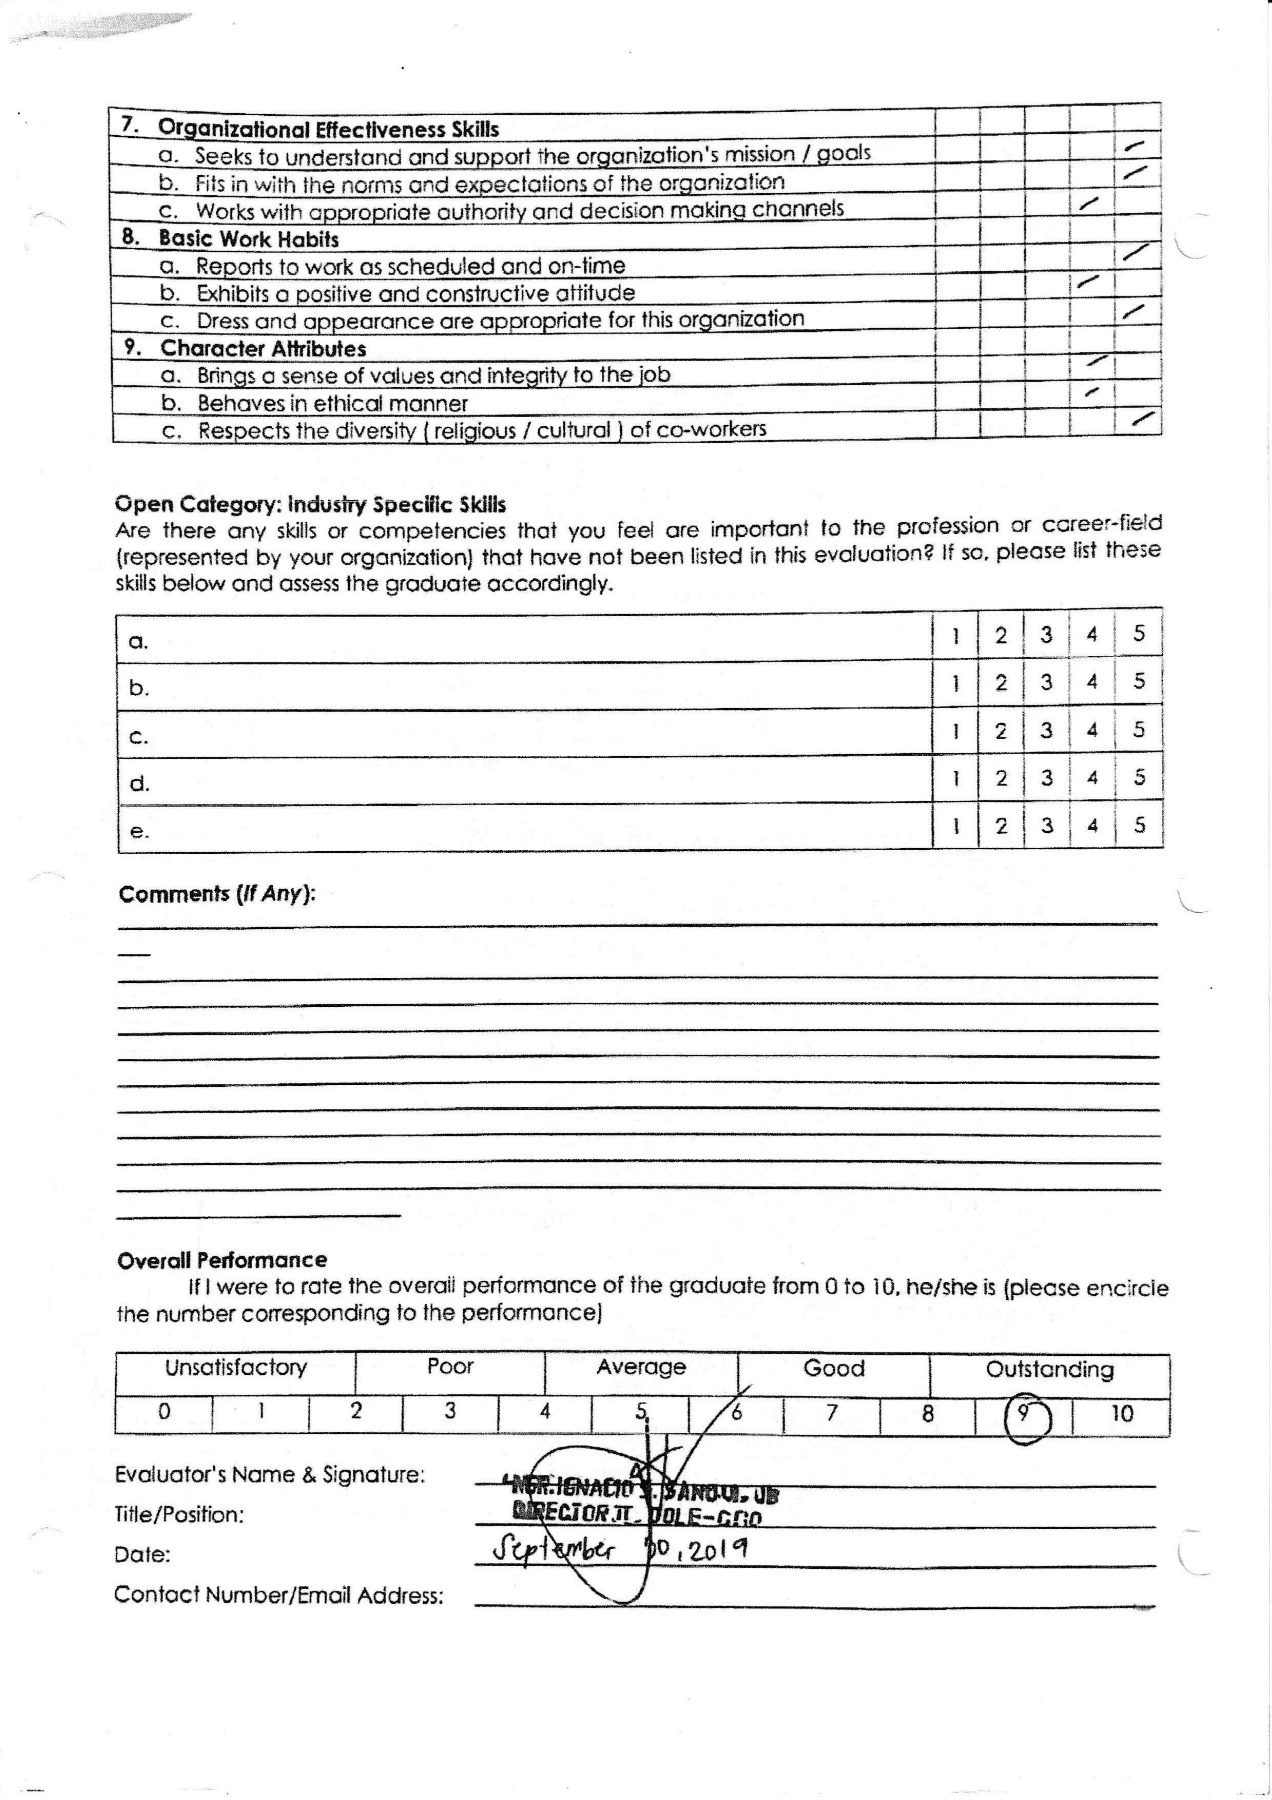 7. Organizational Effectiveness Skills
a. Seeks to understand and support the organization's mission / goals
b. Fits in with the norms and expectations of the organization
c. Works with appropriate authority and decision making channels
8. Basic Work Habits
a. Reports to work as scheduled and on-time
b. Exhibits a positive and constructive attitude
c. Dress and appearance are appropriate for this organization
9. Character Attributes
a. Brings a sense of values and integrity to the job
b. Behaves in ethical manner
c. Respects the diversity ( religious / cultural ) of co-workers
Open Category: Industry Specific Skills
Are there any skills or competencies that you feel are important to the profession or career-field
(represented by your organization) that have not been listed in this evaluation? If so, please list these
skills below and assess the graduate accordingly.
a. 1 2 3 4 5
b. 1 2 3 4 5
c. 1 2 3 4 5
d. 1 2 3 4 5
e. 1 2 3 4 5
Comments (If Any):
Overall Performance
If I were to rate the overall performance of the graduate from 0 to 10, he/she is (please encircle
the number corresponding to the performance)
Unsatisfactory Poor Average Good Outstanding
0 1 2 3 4 5 6 7 8 9 10
Evaluator's Name & Signature: IGNACIO
Title/Position: DIRECTOR II
Date: September 2019
Contact Number/Email Address: